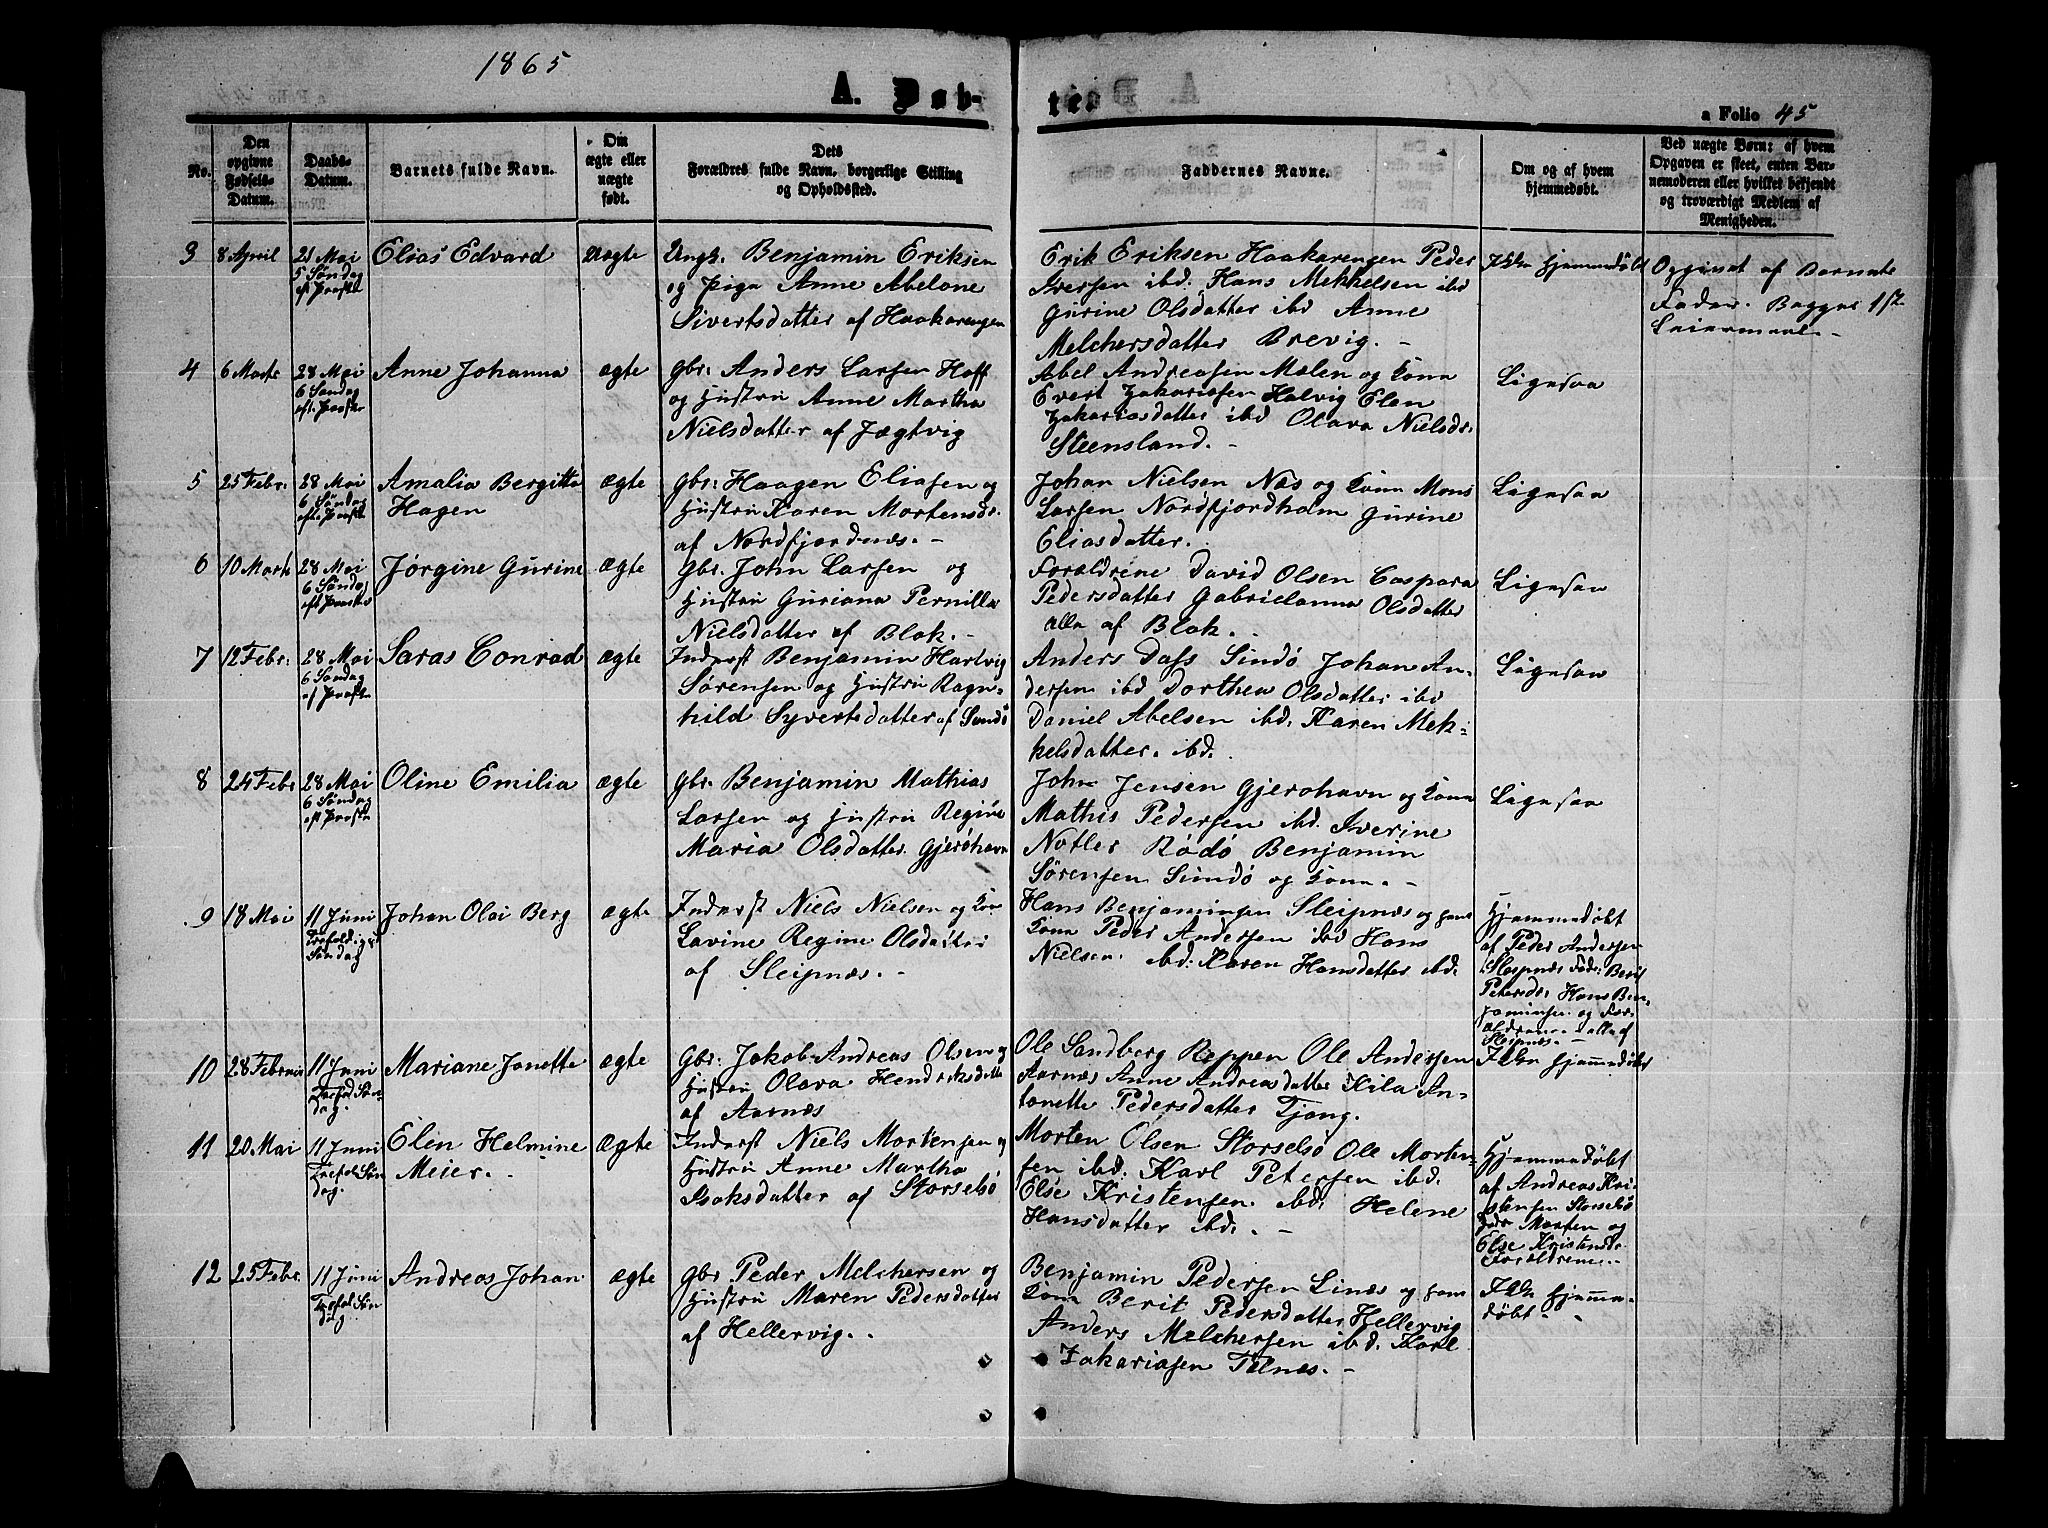 1865
A. Døb-
tte
a Folio 45
No.
Den
opgivne
Fødsels-
Datum.
Daabs-
Datum.
Barnets fulde Navn.
Om
ægte eller
uægte
født.
Dets
Forældres fulde Navn, borgerlige Stilling
og Opholdssted.
Faddernes Navne.
Om og af hvem
hjemmedøbt.
Ved uægte Børn: af hvem
Opgaven er skeet, enten Bar-
nemoderen eller hvilket bekjendt
og troværdigt Medlem af
Menigheden.
3
8 April
21 Mai
5 Søndag
ef. Paaske
Elias Edvard
Uægte
Ungk. Benjamin Eriksen
og Pige Anne Abelone
Sivertsdatter af Haakarengen
Erik Eriksen Haakarengen Peder
Iversen ibd. Hans Mekkelsen ibd
Gurine Olsdatter ibd Anne
Melchersdatter Brevig. -
Ikke Hjemmedøbt
Opgivet af Barnets
Fader. Begges 1ste
Leiermaal -
4
6 Marts
28 Mai
6 Søndag
eft. Paaske
Anne Johanna
ægte
Gbr: Anders Larsen Hoff
og Hustru Anne Martha
Nielsdatter af Jægtvig
Abel Andreasen Melen og Kone
Evert Zakariasen Halvig Elen
Zakariasdatter ibd Olava Nielsdr.
Steensland. -
Ligesaa
5
25 Febr.
28 Mai
6 Søndag
eft. Paaske
Amalia Bergitte
Hagen
ægte
Gbr: Haagen Eliasen og
Hustru Karen Mortensdr.
af Nordfjordnæs. -
Johan Nielsen Næs og Kone Mons
Larsen Nordfjordholm Gurine
Eliasdatter.
Ligesaa
6
10 Marts
28 Mai
6 Søndag
eft Paaske
Jørgine Gurine
ægte
Gbr. John Larsen og
Hustru Guriana Pernille
Nielsdatter af Blok. -
Forældrene David Olsen Caspara
Pedersdatter Gabrielanna Olsdatter
alle af Blok. -
Ligesaa
7
12 Febr.
28 Mai
6 Søndag
ef Paaske
Saras Conrad
ægte
Inderst Benjamin Hartvig
Sørensen og Hustru Ragn-
hild Syvertsdatter af Sundø
Anders Dass Sundø Johan An-
dersen ibd Dorthea Olsdatter ibd
Daniel Abelsen ibd. Karen Mek-
kelsdatter. ibd.
Ligesaa
8
24 Febr
28 Mai
6 Søndag
eft Paaske
Oline Emilia
ægte
Gbr. Benjamin Mathias
Larsen og Hustru Regine
Maria Olsdatter Gjerøhavn
John Jensen Gjerøhavn og Kone
Mathis Pedersen ibd. Iverine
Notler Rødø Benjamin
Sørensen Sundø og Kone. -
Ligesaa
9
18 Mai
11 Juni
Trefoldigged
Søndag
Johan Olai Berg
ægte
Inderst Niels Nielsen og Kone
Lavine Regine Olsdatter
af Sleipnæs. -
Hans Benjaminsen Sleipnæs og hans
Kone Peder Andersen ibd Hans
Nielsen. ibd. Karen Hansdatter ibd.
Hjemmedøbt
af Peder Andersen
Sleipnæs Fad: Berit
Petersdr. Hans Ben-
jaminsen og For-
ældrene. - alle af
Sleipnæs. -
10
28 Februar
11 Juni
Trefold Søn-
dag.
Mariane Janette
ægte
Gbr. Jakob Andreas Olsen og
Hustru Olava Hendriksdatter
af Aarnæs
Ole Sandberg Reppen Ole Andersen
Aarnæs Anne Andreasdatter Kila An-
tonette Pedersdatter Tjong.
Ikke Hjemmedøbt
11
20. Mai
11 Juni
Trefol Søn-
dag.
Elen Helmine
Meier. -
ægte
Inderst Niels Mortensen og
Hustru Anne Martha
Isaksdatter af Storselsø
Morten Olsen Storselsø Ole Morten-
sen ibd. Karl Petersen ibd.
Else Kristensen. ibd. Helene
Hansdatter ibd. -
Hjemmedøbt
af Andreas Kri-
stensen Storselsø
Fadr Morten og
Else Kristensdr.
Forældrene. -
12
25 Febr.
11 Juni
Trefol Søn-
dag.
Andreas Johan
ægte
Gbr Peder Melchersen og
Hustru Maren Pedersdatter
af Hellervig. .
Benjamin Pedersen Linæs og hans
Kone Berit Pedersdatter Hellervig
Anders Melchersen ibd. Karl
Zakariasen Telnæs. -
Ikke Hjemme-
døbt. -